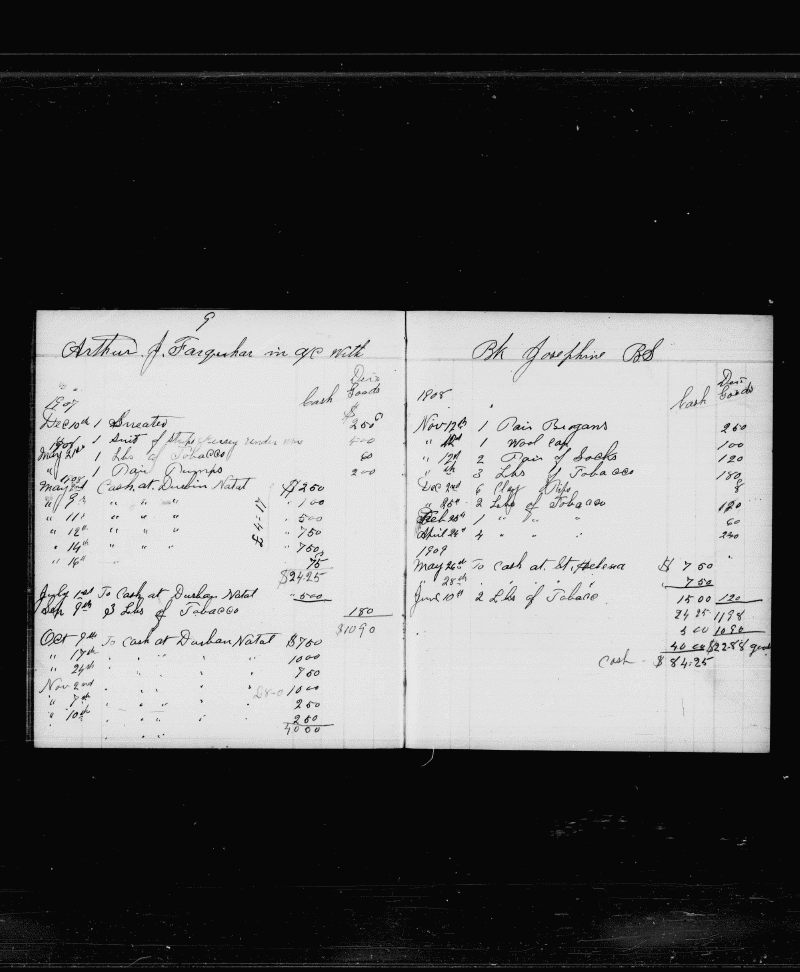 9
Arthur J. Farquhar in a/c with
Cash Goods
1907 $
Dec 10th 1 250
1 Suit of 400
May 21st 1 Lbs of Tobacco 60
" 1 Pair Pumps 200
1908
May 2nd Cash at Natal $ 250
" 9th " " " " 100
" 11th " " " " 500
" 12th " " " " 750
" 14th " " " " 750
" 16th " 75
$24.25
July 1st To Cash at Durban Natal " 500
Sep 9th 3 Lbs of Tobacco 180
$1090
Oct 9th To Cash at Durban Natal $ 750
" 17th " " " " 1000
" 24th " " " " 750
Nov 2nd " " " " 1000
" 7th " " " " 250
" 10th " " " " 250
4000
Bk Josephine BS
Cash Goods
1908
Nov 12th 1 Pair Brogans 250
" 1 Wool Cap 100
" 12th 2 Pair of Socks 120
" 3 Lbs of Tobacco 180
Dec 2nd 6 Clay Pipes 8
" 25th 2 Lbs of Tobacco 120
Feb 1 " " " 60
April 4 " " " 240
1909
May 26th To Cash at St. Helena $ 7 50
" 28th " " " " 7 50
June 10th 2 Lbs of Tobacco 15 00 120
24 25 1198
5 00 1090
40 00 $22.88
Cash $ 84.25